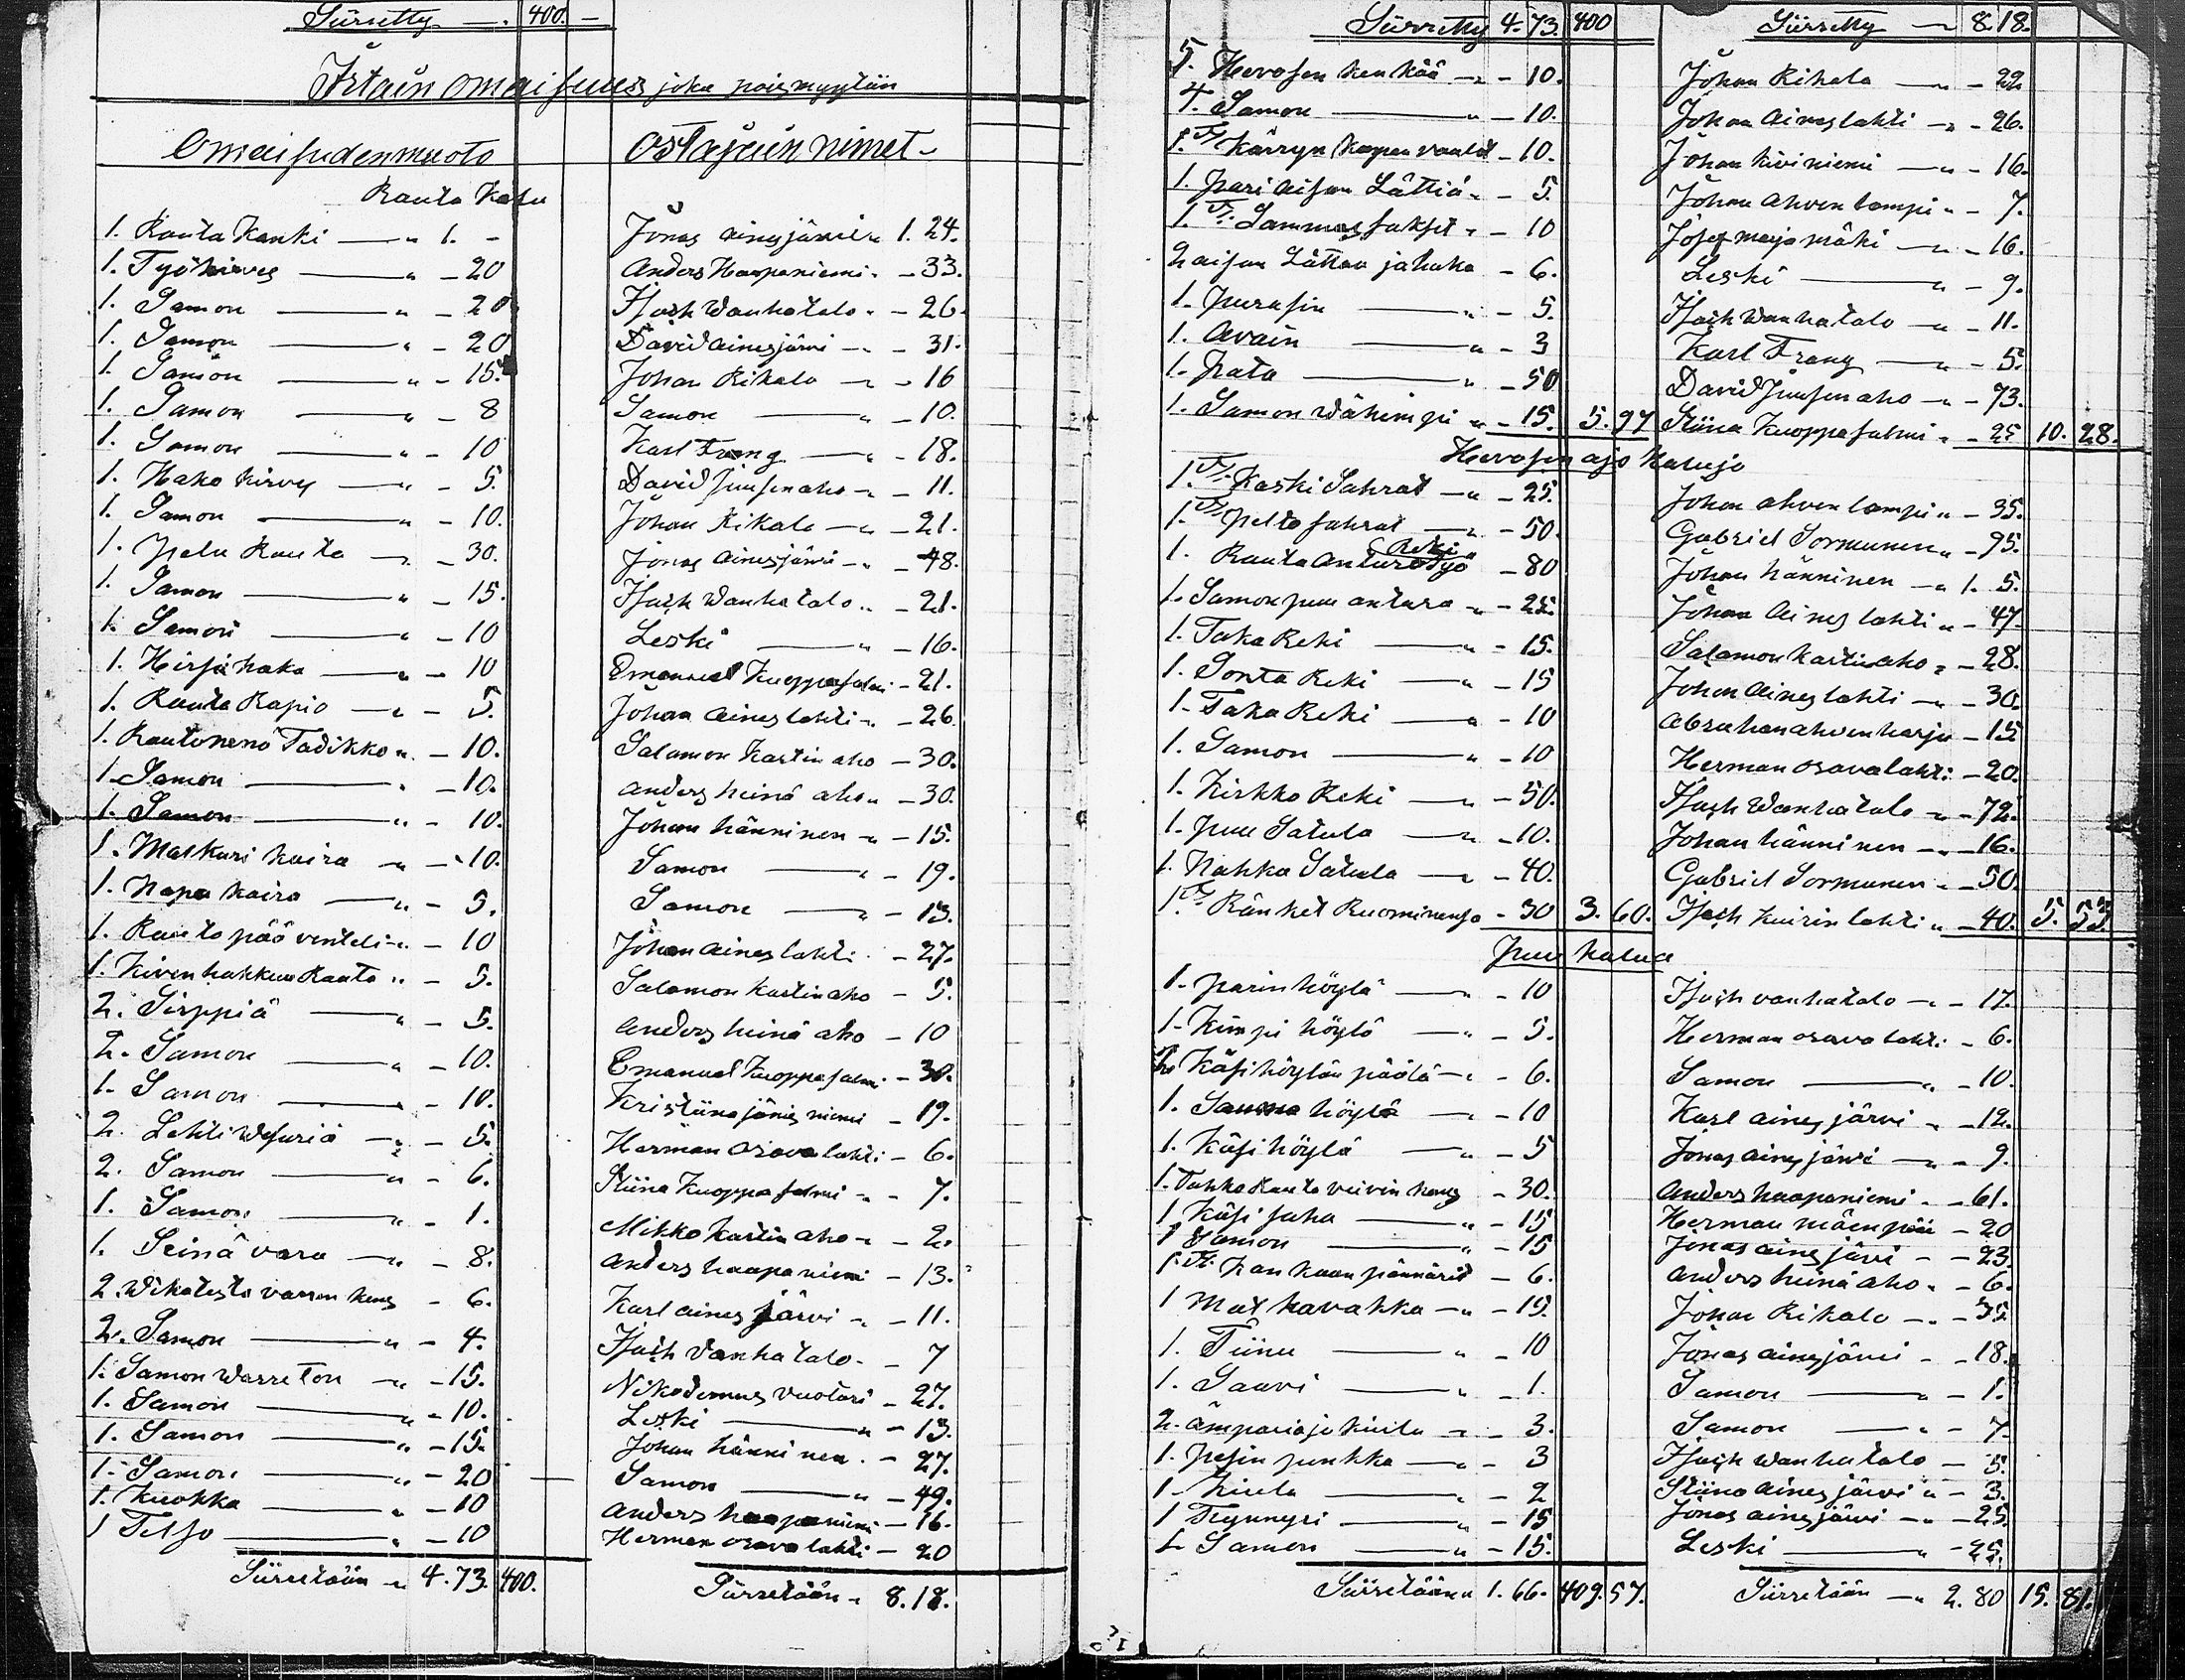 Siirretty — . 400. —
Irtain omaisuus joka poismyytiin
Omaisudenmuoto Ostajain nimet
Rauta Kalu
1. Rauta Kanki — " 1. - Jonas ainesjärvi " 1. 24.
1. Työkirves — " - 20 Anders Haapaniemi " - 33.
1. Samon — " - 20 Isach Wanhatalo " - 26.
1. Samon — " - 20 David ainesjärvi — " - 31.
1. Samon — " - 15. Johan Rikalo — " - 16
1. Samon — " - 8 Samon — " - 10.
1. Samon — " - 10 Karl Frang — " - 18.
1. Hako kirves — " - 5. David Juusenaho — " - 11.
1. Samon — " - 10. Johan Rikalo — " - 21.
1. Palu Rauta — " - 30. Jonas ainesjärvi — " - 48.
1. Samon — " - 15. Isach Wanhatalo " - 21.
1. Samon — " - 10 Leski — " - 16.
1. Hirsihaka — " - 10 Emanuel Kuoppasalmi - 21.
1. Rauta Rapio — " - 5. Johan aineslahti " - 26.
1. Rautonenä Tadikko " - 10. Salamon Kastinaho - 30.
1. Samon — " - 10. anders heinä aho " - 30.
1. Samon — " - 10. Johan hänninen " - 15.
1. Matkuri kaira " - 10. Samon — " - 19.
1. Napa kaira — " - 5. Samon — " - 13.
1. Rauta pää venteli " - 10 Johan aineslahti - 27.
1. Kivenhakkuu Rauta " - 5. Salamon Kastinaho - 5.
2. Sirppiä — " - 5. Anders heinä aho - 10
2. Samon — " - 10. Emanuel Kuoppasalmi - 30.
1. Samon — " - 10. Kristiina jänisniemi - 19.
2. Lehti Wesuria — " - 5. Herman Osavalahti - 6.
2. Samon — " - 6. Stiina Kuoppasalmi " - 7.
1. Samon — " - 1. Mikko Kastinaho " - 2.
1. Seinä vara — " - 8. Anders haapaniemi - 13.
2. Wikatesta varren kans - 6. Karl aines järvi " - 11.
2. Samon — " - 4. Isach Vanhatalo - 7
1. Samon Warreton " - 15. Nikodemus Vuotari - 27.
1. Samon — " - 10. Leski — " - 13.
1. Samon — " - 15. Johan hänninen - 27.
1. Samon — " - 20 Samon — " - 49.
1. Kuokka — " - 10 Anders haapaniemi - 16.
1 Telso — " - 10 Herman osavalahti - 20
Siirretään " 4.73. 400. Siirretään " 8.18.
Siirretty 4.73. 400 Siirretty — 8.18.
5. Hevosen kenkää — " - 10. Johan Rikalo — " - 22
4. Samon — " - 10. Johan aineslahti " - 26.
1. Kärryn - 10. Johan Kiviniemi — " - 16.
1. pari aisan Lättiä " - 5. Johan ahvenlampi " - 7.
1. Lammassakset " - 10 Josef marjamäki — " - 16.
2 aisan Lättää ja haka - 6. Leski — " - 9.
1. purasin — " - 5. Isach Wanhatalo — " - 11.
1. Avain — " - 3 Karl Frang — " - 5.
1. Pata — " - 50 David Juusenaho " - 73.
1. Samon Wähempi " - 15. 5.97 Stiina Kuoppasalmi " - 25 10.28.
Hevosen ajo Kaluja
1. Kaski Sahrat — " - 25. Johan ahvenlampi " - 35.
1. pelto sahrat — " - 50. Gabriel Sormunen " - 95.
1. Rauta antura työ Reki " - 80 Johan hänninen — " 1. 5.
1. Samon puu antura " - 25. Johan Aineslahti " - 47.
1. Taka Reki — " - 15. Salamon Kastinaho " - 28.
1. Sonta Reki — " - 15 Johan Aineslahti — " - 30.
1. Taka Reki — " - 10 Abraham ahvenharju - 15
1. Samon — " - 10 Herman Osavalahti - 20.
1. Kirkko Reki — " - 50. Isach Wanhatalo " - 72.
1. puu Satula — " - 10. Johan hänninen — " - 16.
1. Nahka Satula — " - 40. Gabriel Sormunen " - 50.
1. Ränket Ruominensa - 30 3.60. Isach Kuirinlahti " - 40. 5.53
Puu kalua
1. parin höylä — " - 10 Isach vanhatalo — " - 17.
1. Kimpi höylä — " - 5. Herman osavalahti - 6.
Käsihöylän päätä — " - 6. Samon — " - 10.
1. Sauma höylä — " - 10 Karl aines järvi " - 12.
1. Käsihöylä — " - 5 Jonas aines järvi — " - 9.
1. Tahko Rauta veivin kans - 30. Anders haapaniemi " - 61.
1 Käsi saha — " - 15 Herman mäenpää - 20
1 Samon — " - 15 Jonas aines järvi - - 23.
1. Kankaan pännärit - 6. Anders heinä aho " - 6.
1 Mat havahka — " - 15. Johan Rikalo — " - 35
1. Tiinu — " - 10 Jonas ainesjärvi - - 18.
1. Saavi — " - 1. Samon — " - 1.
2. ämpäriä ja kiulu — " - 3. Samon — " - 7.
1. pesin punkka — " - 3 Isach Wanhatalo - 5.
1. kiulu — " - 2 Stiina Aines järvi " - 3.
1 Tynnyri — " - 15 Jonas ainesjärvi — " - 25.
1. Samon — " - 15. Leski — " - 25.
Siirretään " 1.66. 409.57. Siirretään — " 2.80 15.81.